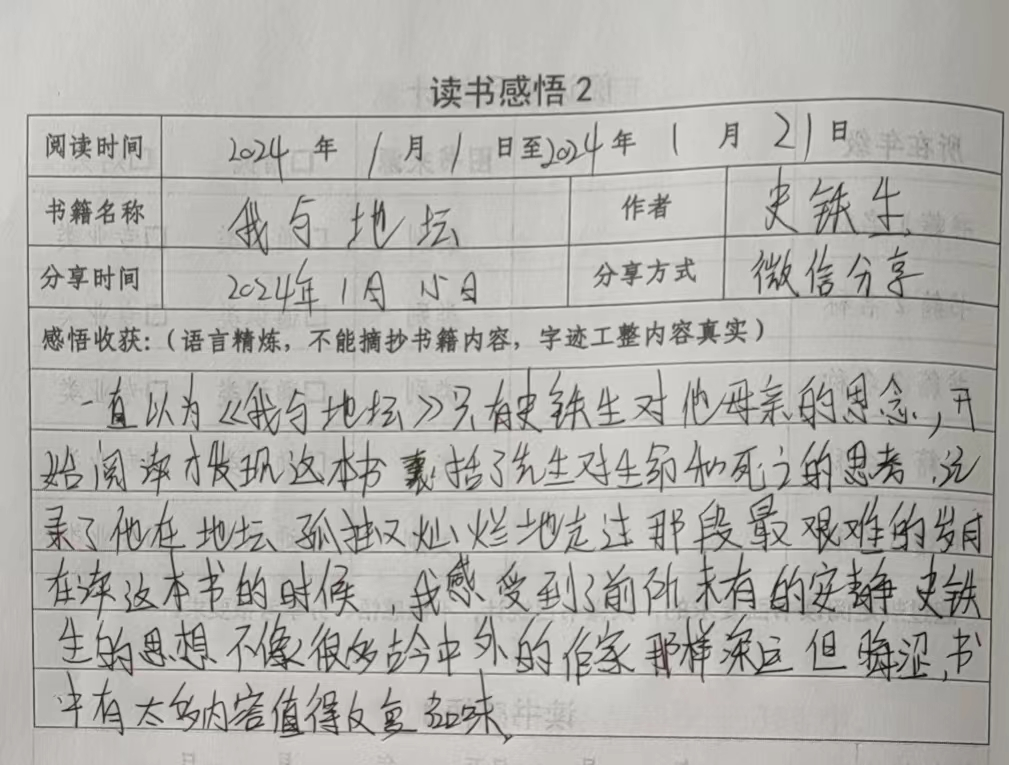 读书感悟2
阅读时间 2024年1月1日至2024年1月21日
书籍名称 我与地坛 作者 史铁生
分享时间 2024年1月15日 分享方式 微信分享
感悟收获:(语言精炼,不能摘抄书籍内容,字迹工整内容真实)
一直以为《我与地坛》只有史铁生对他母亲的思念,开
始阅读才发现这本书囊括了先生对生命和死亡的思考,记
录了他在地坛孤独又灿烂地走过那段最艰难的岁月
在读这本书的时候 我感受到了前所未有的安静 史铁
生的思想不像很多古今中外的作家那样深远但晦涩,书
中有太多内容值得反复品味,